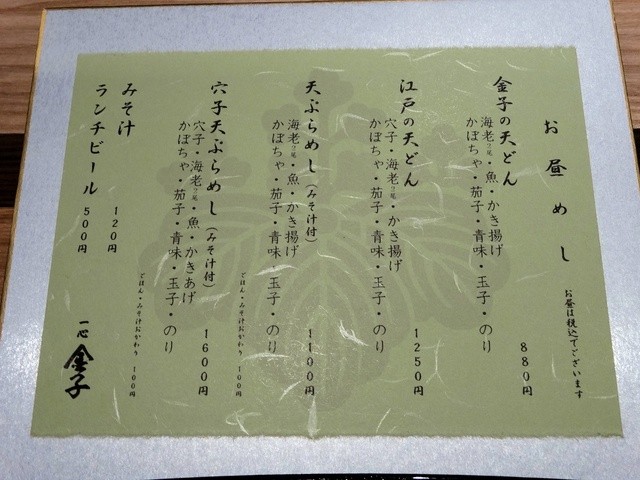 お昼めし
お昼は税込でございます
金子の天どん
海老二尾・魚・かき揚げ
かぼちゃ・茄子・青味・玉子・のり
880円
江戸の天どん
穴子・海老二尾・かき揚げ
かぼちゃ・茄子・青味・玉子・のり
1250円
天ぷらめし(みそ汁付)
海老二尾・魚・かき揚げ
かぼちゃ・茄子・青味・玉子・のり
1100円
ごはん・みそ汁おかわり 100円
穴子天ぷらめし(みそ汁付)
穴子・海老二尾・魚・かきあげ
かぼちゃ・茄子・青味・玉子・のり
1600円
ごはん・みそ汁おかわり 100円
みそ汁 120円
ランチビール 500円
一心 金子